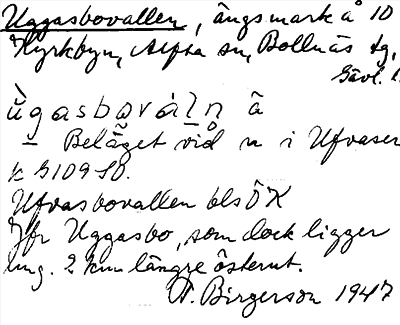 Uggasbovallen, ängsmark å 10
Kyrkbyn, Alfta sn, Bollnäs tg,
Gävl. l.
ùgasbováln å
– Beläget vid n i Ufvaser
k 5109 SO.
Ufvasbovallen bls ÖK
Jfr Uggasbo, som dock ligger
ung. 2 km längre österut.
A. Birgerson 1947